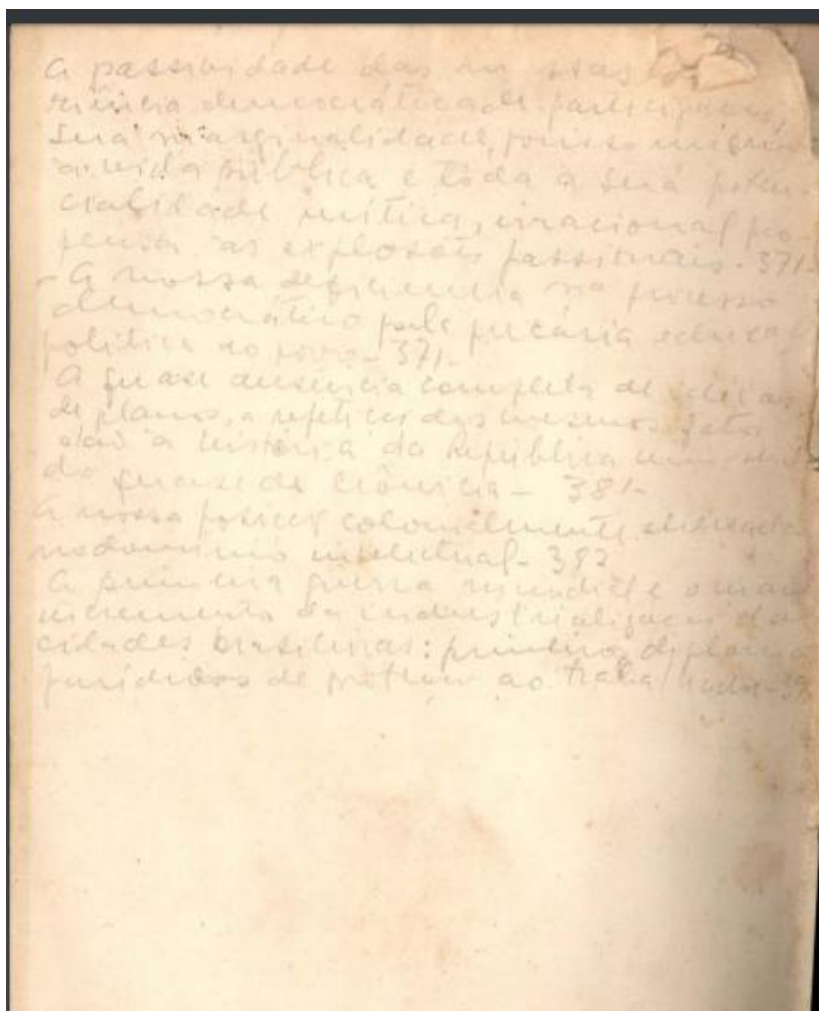 A passividade das massas
democrática de participação,
sua marginalidade,
a vida pública e toda a sua poten-
cialidade mítica, irracional pro-
pensa as explosões passionais - 371-
- A nossa deficiencia no processo
democrático pela precária educação
política do povo - 371-
A quase ausência completa de idéias,
de planos, a repetição dos mesmos fatos
dão à história da República um
do quase de crônica - 381-
A nossa posição colonialmente
no domínio intelectual - 382
A primeira guerra mundial e o maior
incremento da industrialização das
cidades brasileiras: primeiros diplomas
jurídicos de proteção ao trabalhador - 39